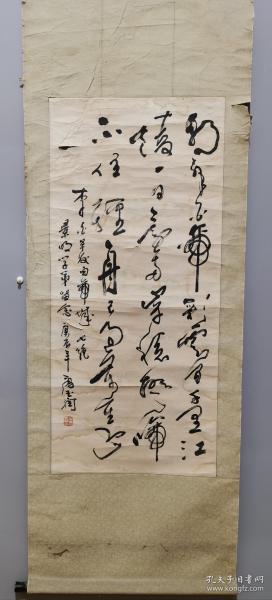 朝辭白帝彩雲間千里江
陵一日還兩岸猿聲啼
不住輕舟已過萬重山
李白早發白帝城七絕
學弟留念 庚 年
孔夫子旧书网